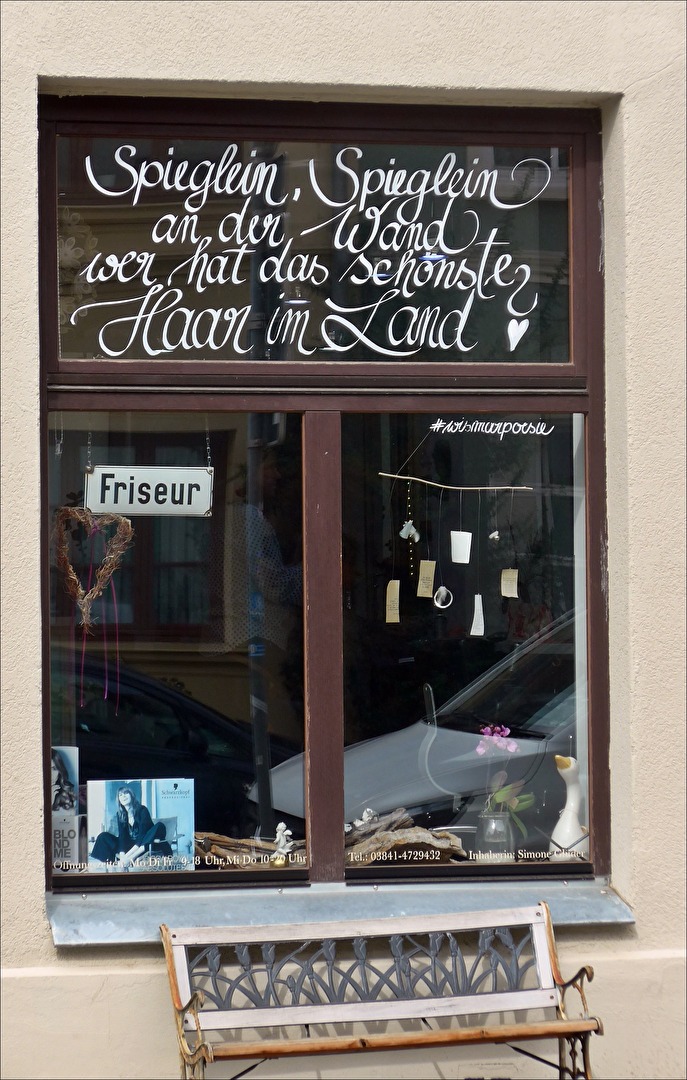 Spieglein, Spieglein
an der Wand
wer hat das schönste
Haar im Land?
#wismarpoesie
Friseur
Schwarzkopf
BLOND
ME
Öffnungszeiten: Mo Di Fr 9-18 Uhr, Mi Do 10-20 Uhr
Tel.: 03841-4729432
Inhaberin: Simone